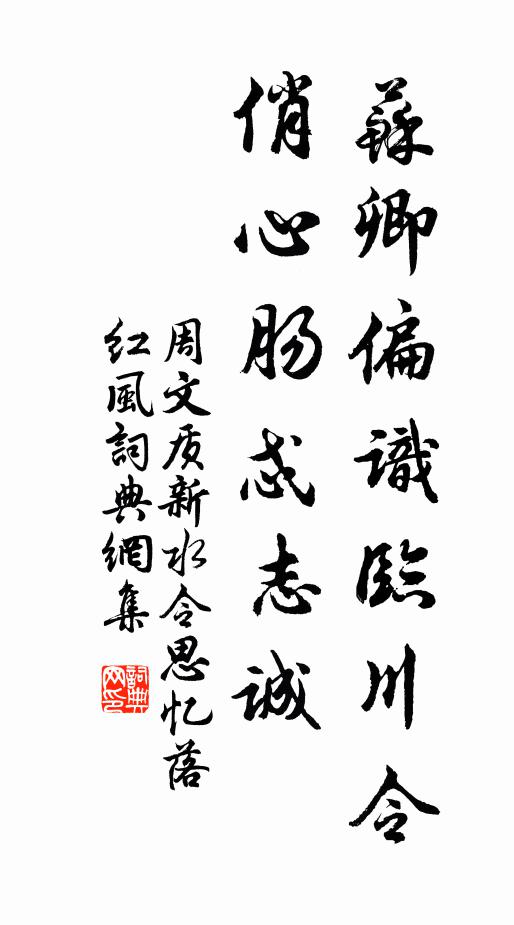 蘇卿偏識臨川令
俏心腸忒志誠
周文质新水令思忆落
红風詞典網集
詞典
网印